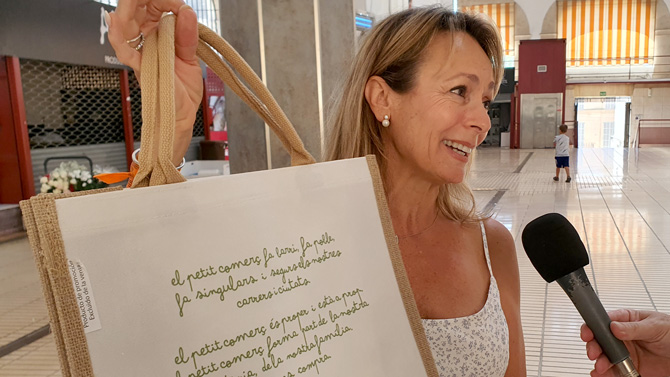 el petit comerç fa barri, fa poble,
fa singulars i segurs els nostres
carrers i ciutats.
el petit comerç és proper i està a prop.
el petit comerç forma part de la nostra
de la nostra família.
compra.
Producto de promoción
Excluido de la venta